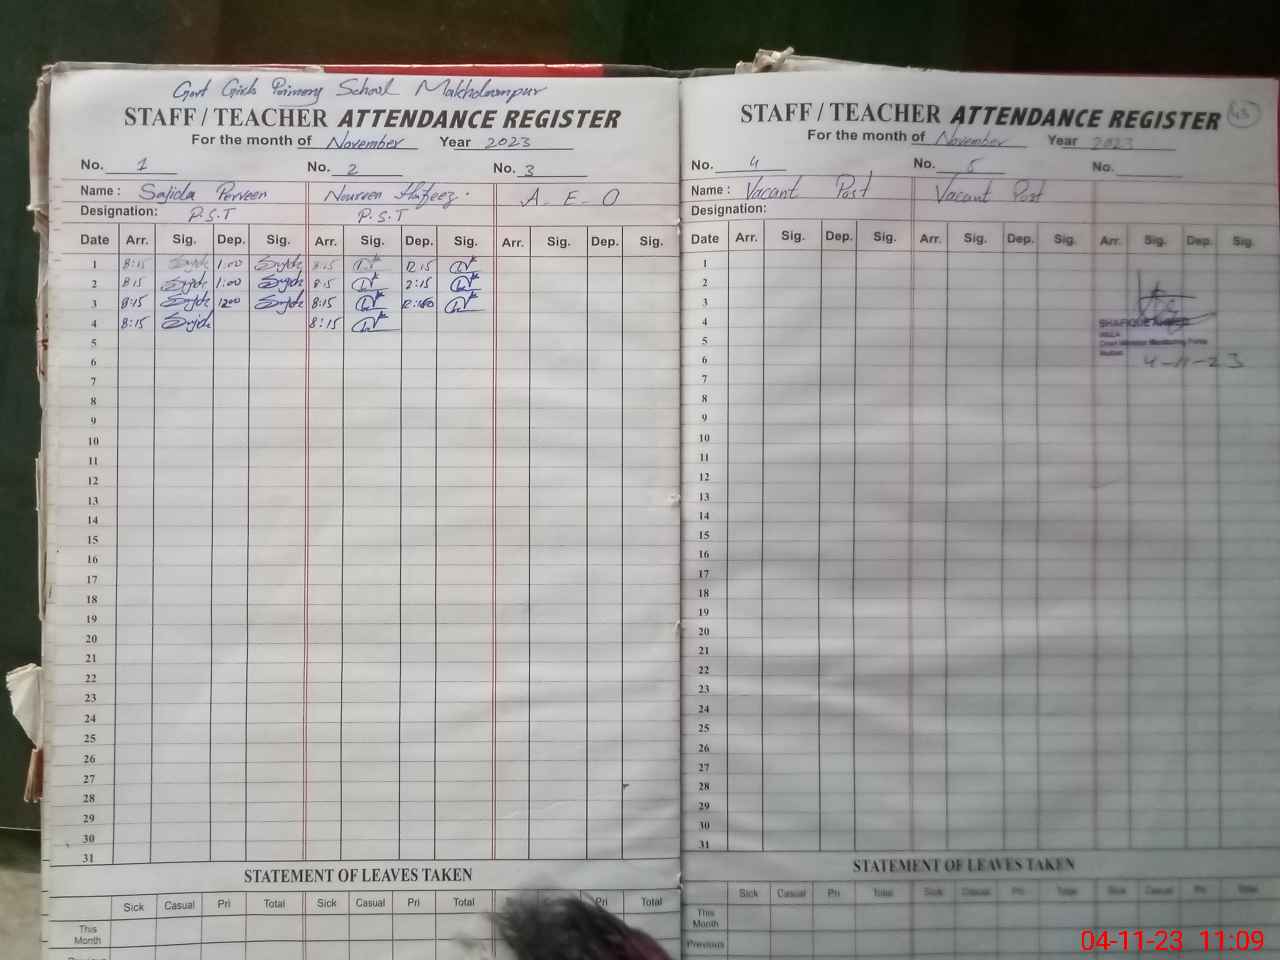 Govt Girls Primary School Makhdoompur
STAFF / TEACHER ATTENDANCE REGISTER
For the month of November Year 2023
No. 1 No. 2 No. 3
Name : Sajida Perveen Noureen Hafeez. A. E. O
Designation: P.S.T P.S.T
Date Arr. Sig. Dep. Sig. Arr. Sig. Dep. Sig. Arr. Sig. Dep. Sig.
1 8:15 1:00 8:15 12:15
2 8:15 1:00 8:15 2:15
3 8:15 1200 8:15
4 8:15 8:15
5
6
7
8
9
10
11
12
13
14
15
16
17
18
19
20
21
22
23
24
25
26
27
28
29
30
31
STATEMENT OF LEAVES TAKEN
Sick Casual Pri Total Sick Casual Pri Total Pri Total
This
Month
43
STAFF / TEACHER ATTENDANCE REGISTER
For the month of November Year 2023
No. 4 No. 5 No.
Name : Vacant Post Vacant Post
Designation:
Date Arr. Sig. Dep. Sig. Arr. Sig. Dep. Sig. Arr. Sig. Dep. Sig.
1
2
3
4
5
6 4-11-23
7
8
9
10
11
12
13
14
15
16
17
18
19
20
21
22
23
24
25
26
27
28
29
30
31
STATEMENT OF LEAVES TAKEN
Sick Casual Pri Total Sick Casual Pri Total Sick Casual Pri Total
This
Month
Previous
04-11-23 11:09